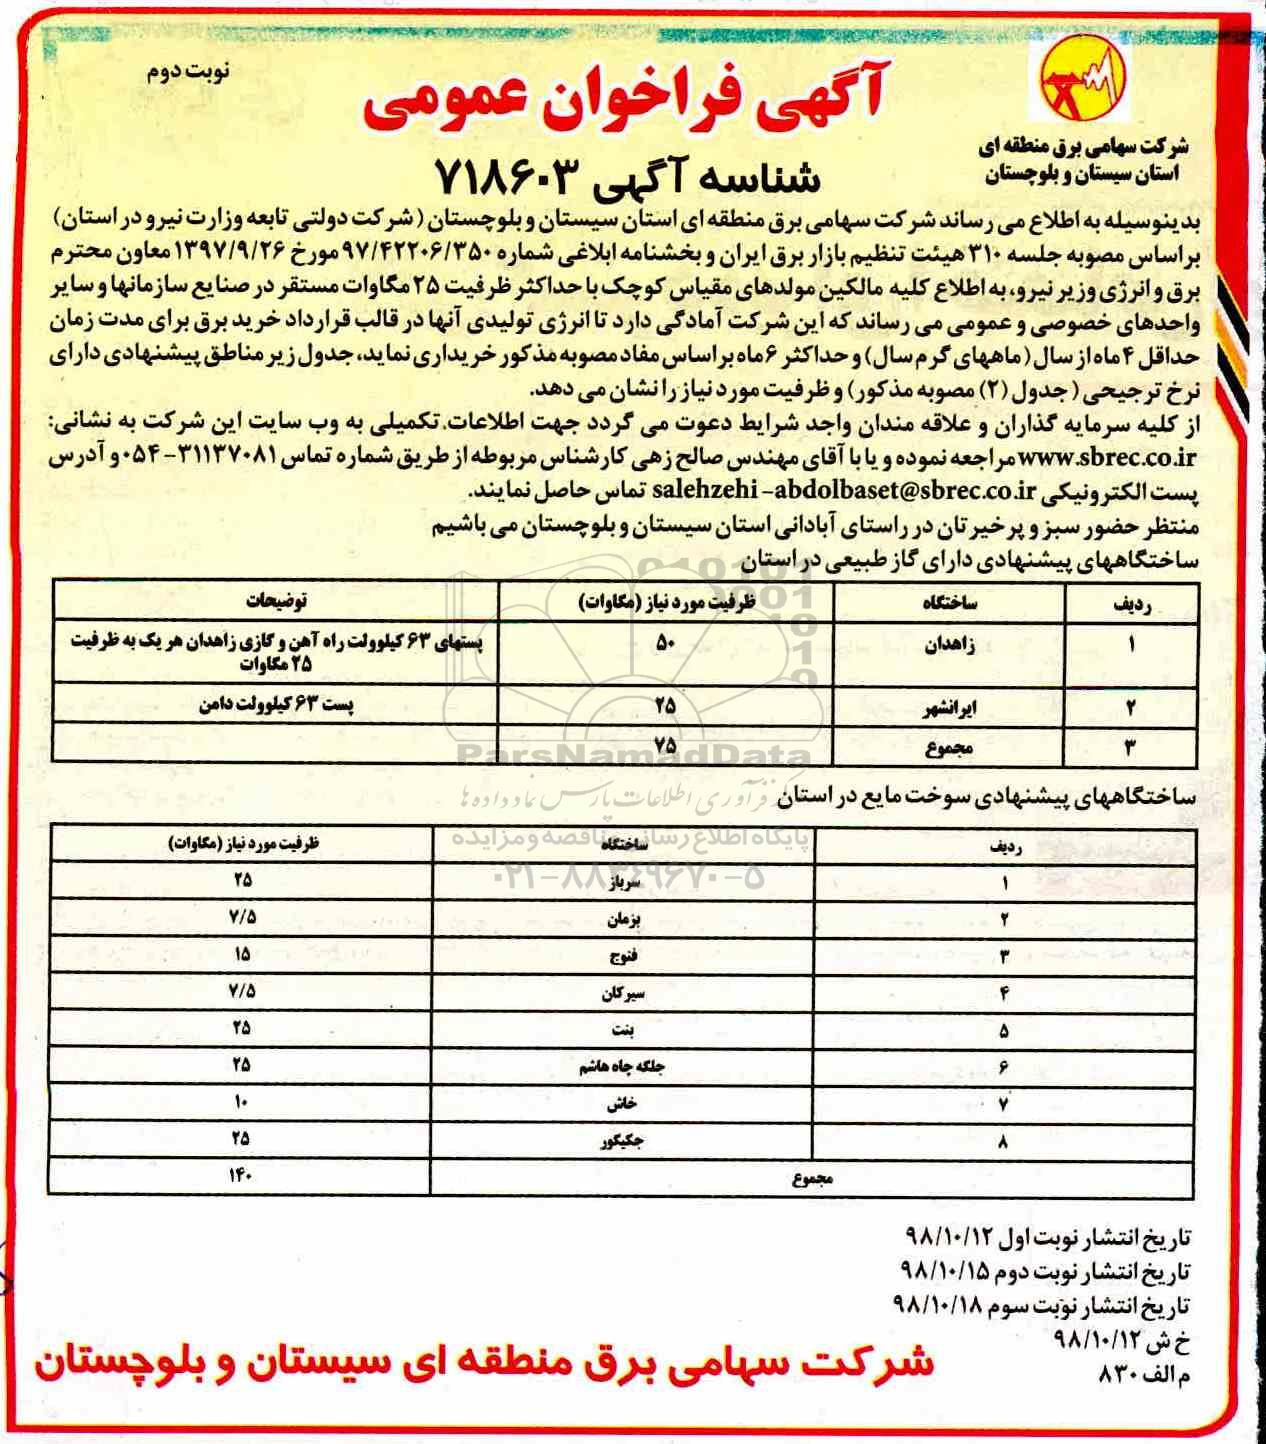 نوبت دوم
آگهی فراخوان عمومی
شرکت سهامی برق منطقه ای
استان سیستان و بلوچستان
شناسه آگهی ۷۱۸۶۰۳
بدینوسیله به اطلاع می رساند شرکت سهامی برق منطقه ای استان سیستان و بلوچستان (شرکت دولتی تابعه وزارت نیرو در استان)
براساس مصوبه جلسه ۳۱۰ هیئت تنظیم بازار برق ایران و بخشنامه ابلاغی شماره ۹۷/۴۲۲۰۶/۳۵۰ مورخ ۱۳۹۷/۹/۲۶ معاون محترم
برق و انرژی وزیر نیرو، به اطلاع کلیه مالکین مولدهای مقیاس کوچک با حداکثر ظرفیت ۲۵ مگاوات مستقر در صنایع سازمانها و سایر
واحدهای خصوصی و عمومی می رساند که این شرکت آمادگی دارد تا انرژی تولیدی آنها در قالب قرارداد خرید برق برای مدت زمان
حداقل ۴ ماه از سال (ماههای گرم سال) و حداکثر ۶ ماه براساس مفاد مصوبه مذکور خریداری نماید، جدول زیر مناطق پیشنهادی دارای
نرخ ترجیحی (جدول (۲) مصوبه مذکور) و ظرفیت مورد نیاز را نشان می دهد.
از کلیه سرمایه گذاران و علاقه مندان واجد شرایط دعوت می گردد جهت اطلاعات تکمیلی به وب سایت این شرکت به نشانی:
www.sbrec.co.ir مراجعه نموده و یا با آقای مهندس صالح زهی کارشناس مربوطه از طریق شماره تماس ۳۱۱۳۷۰۸۱-۰۵۴ و آدرس
پست الکترونیکی salehzehi-abdolbaset@sbrec.co.ir تماس حاصل نمایند.
منتظر حضور سبز و پرخیرتان در راستای آبادانی استان سیستان و بلوچستان می باشیم
ساختگاههای پیشنهادی دارای گاز طبیعی در استان
ردیف ساختگاه ظرفیت مورد نیاز (مگاوات) توضیحات
۱ زاهدان ۵۰ پستهای ۶۳ کیلوولت راه آهن و گازی زاهدان هر یک به ظرفیت
۲۵ مگاوات
۲ ایرانشهر ۲۵ پست ۶۳ کیلوولت دامن
۳ مجموع ۷۵
ParsNamadData
فرآوری اطلاعات پارس نماد داده ها
ساختگاههای پیشنهادی سوخت مایع در استان
پایگاه اطلاع رسانی مناقصه و مزایده
۰۲۱-۸۸۳۴۹۶۷۰-۵
ردیف ساختگاه ظرفیت مورد نیاز (مگاوات)
۱ سرباز ۲۵
۲ بزمان ۷/۵
۳ فنوج ۱۵
۴ سیرکان ۷/۵
۵ بنت ۲۵
۶ جلگه چاه هاشم ۲۵
۷ خاش ۱۰
۸ جکیگور ۲۵
مجموع ۱۴۰
تاریخ انتشار نوبت اول ۹۸/۱۰/۱۲
تاریخ انتشار نوبت دوم ۹۸/۱۰/۱۵
تاریخ انتشار نوبت سوم ۹۸/۱۰/۱۸
خ ش ۹۸/۱۰/۱۲
م الف ۸۳۰
شرکت سهامی برق منطقه ای سیستان و بلوچستان